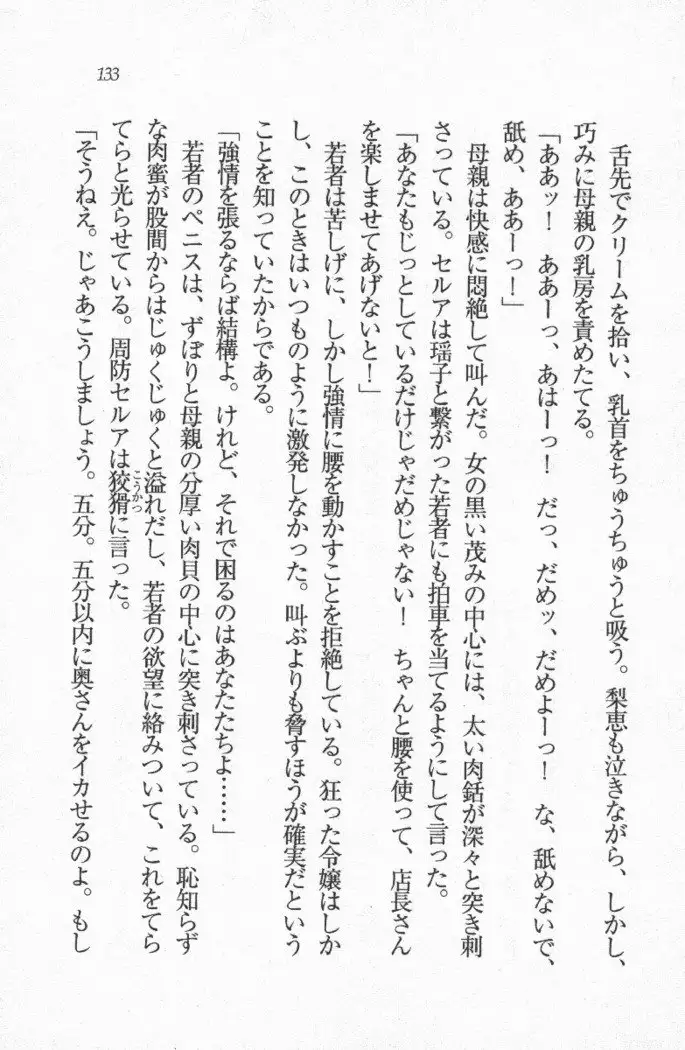 133
舌先でクリームを拾い、乳首をちゅうちゅうと吸う。梨恵も泣きながら、しかし、
巧みに母親の乳房を責めたてる。
「ああッ！　ああーっ、あはーっ！　だっ、だめッ、だめよーっ！　な、舐めないで、
舐め、ああーっ！」
母親は快感に悶絶して叫んだ。女の黒い茂みの中心には、太い肉銛が深々と突き刺
さっている。セルアは瑶子と繋がった若者にも拍車を当てるようにして言った。
「あなたもじっとしているだけじゃだめじゃない！　ちゃんと腰を使って、店長さん
を楽しませてあげないと！」
若者は苦しげに、しかし強情に腰を動かすことを拒絶している。狂った令嬢はしか
し、このときはいつものように激発しなかった。叫ぶよりも脅すほうが確実だという
ことを知っていたからである。
「強情を張るならば結構よ。けれど、それで困るのはあなたたちよ……」
若者のペニスは、ずぽりと母親の分厚い肉貝の中心に突き刺さっている。恥知らず
な肉蜜が股間からはじゅくじゅくと溢れだし、若者の欲望に絡みついて、これをてら
てらと光らせている。周防セルアは狡猾こうかつに言った。
「そうねえ。じゃあこうしましょう。五分。五分以内に奥さんをイカせるのよ。もし